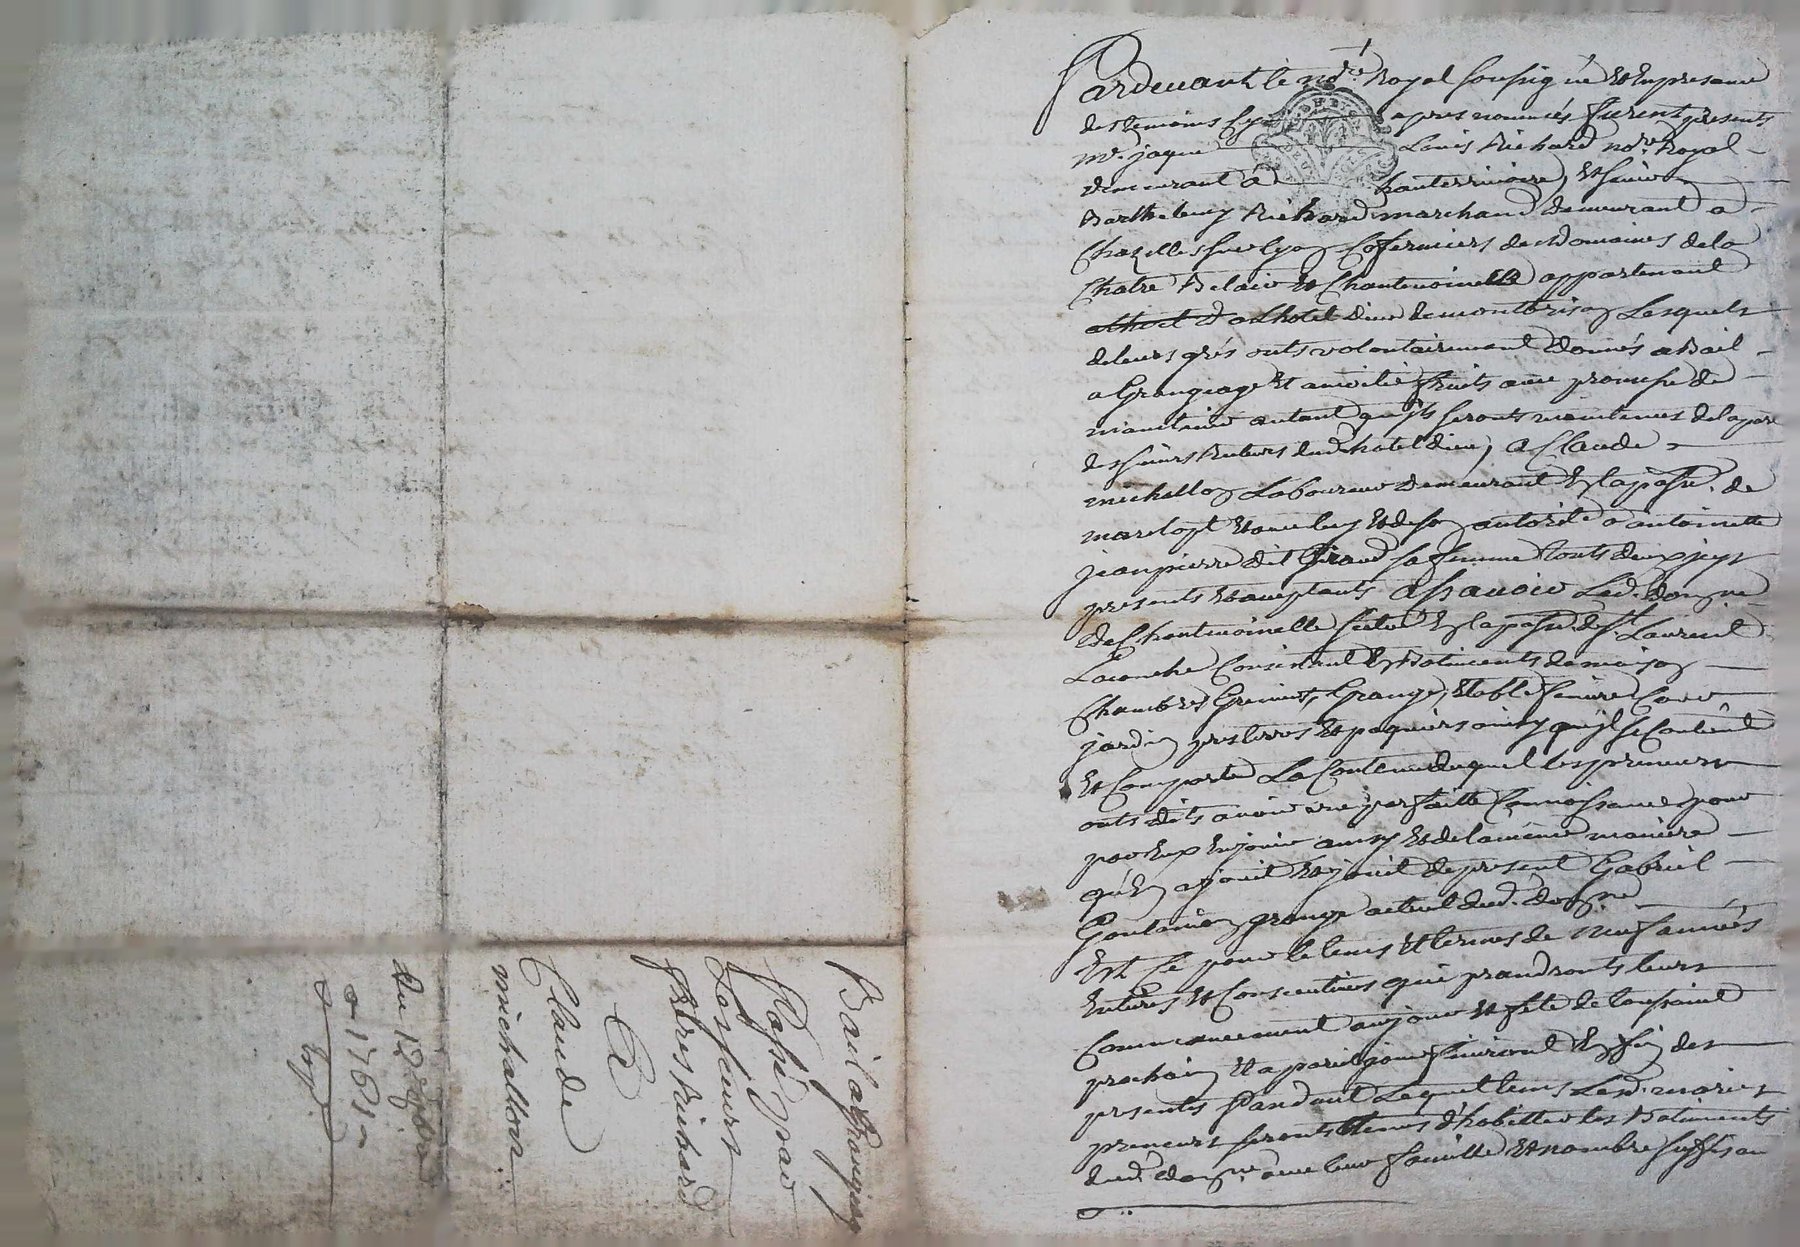 Pardevant le no.re Royal soussigné et en presence
des temoins cy apres nommés furent présents
m.e jaque Louis Richard no.re Royal
demeurant a hauterivoire, et sieur
Barthelemy Richard marchand demeurant a
Chazelles sur lyon Cofermiers des Domaines de la
Chatre Belair et Chantemoinelle appartenant
a Lhotel dieu de montbrison Lesquels
de leurs grés onts volontairement donnés a Bail
a Grangeage et a moitié fruits avec promesse de
maintenir autant qu'ils seronts maintenus de la part
des sieurs Recteurs dud. hotel dieu, a Claude
michallon Laboureur demeurant en la paroisse de
marclopt et avec luy et de son autorité a antoinette
jeanpierre dit Giraud sa femme touts deux icy
presents et acceptants a Scavoir Led. dom.ne
de Chantemoinelle scitué en la paroisse de St Laurent
Laconche Consistant en Batiments de maison
Chambres Greniers, Grange, Etable feniere Cour
jardin pres terres et paquiers ainsy qu'il se Contient
et Comporte La Contenue duquel les preneurs
onts dits avoir une parfaitte Connoissance, pour
par Eux En jouir ainsy et de la même maniere
qu'en a jouit et jouit de present Gabriel
granger actuel dud. dom.ne
Est Ce pour le tems et termes de neuf années
Entieres et Consecutives qui prandronts leurs
Commencement au jour et fete de toussaint
prochain et a pareil jour finiront En fin des
presentes Pandant Lequel tems Lesd. mariés
preneurs seronts tenus d'habitter les Batiments
dud. dom.ne avec leur famille et nombre suffisan
Bail a Grangeage
Passé par
Les sieurs
freres Richard
A
Claude
michallon
Du 12
1761